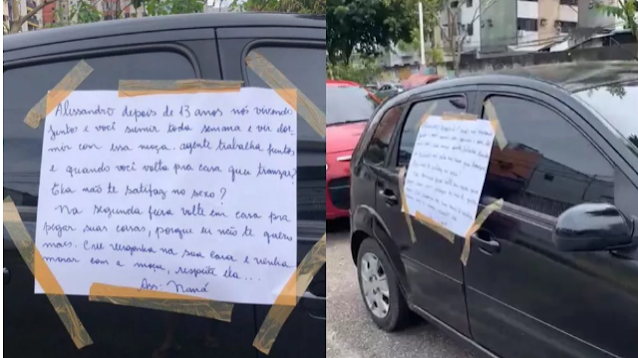 Alessandro depois de 13 anos nós vivendo
juntos e você sumir toda semana e vir dor-
mir com essa moça. agente trabalha juntos,
e quando você volta pra casa quer transar?
Ela não te satifaz no sexo?
Na segunda feira volte em casa pra
pegar suas coisas, porque eu não te quero
mais. Crie vergonha na sua cara e venha
morar com a moça, respeite ela...
Ass: Naná